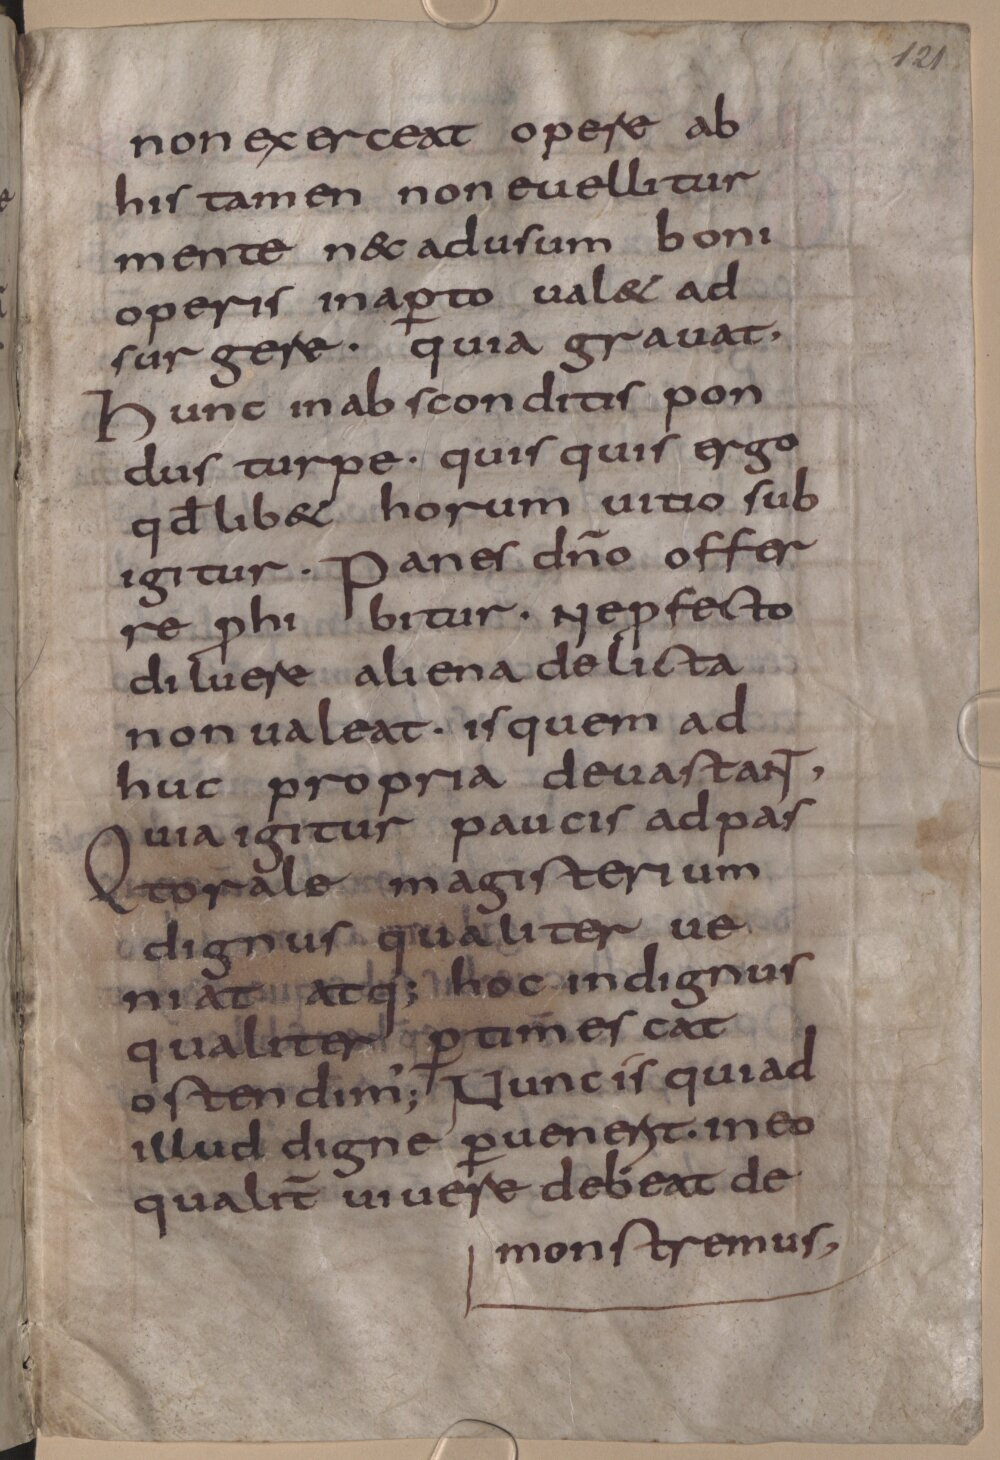 121
non exerceat opere ab
his tamen non euellitur
mente n& adusum boni
operis inap̱to ual& ad
surgere · quia grauat,
Hunc inabsconditis pon
dus turpe · quis quis ergo
qd̄lib& horum uitio sub
igitur · Panes dño offer
re ꝓhi bitur · Neꝓfecto
diluere aliena delicta
non ualeat · is quem ad
huc propria deuastaN̄,
Quia igitur paucis adpas
torale magisterium
dignus qualiter ue
niat atq; hoc indignus
qualiter ꝑtimescat
ostendim'; Nunc is quiad
illud digne ꝑuenerit · in eo
qualit̄ uiuere debeat de
monstremus,